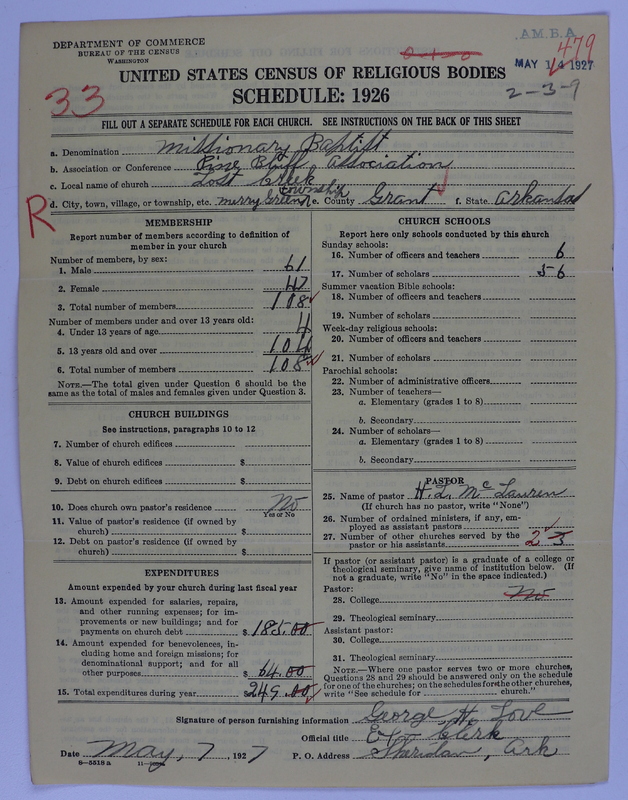 DEPARTMENT OF COMMERCE
BUREAU OF THE CENSUS
WASHINGTON
A.M.B.A.
479
MAY 14 1927
2-3-9
33
UNITED STATES CENSUS OF RELIGIOUS BODIES
SCHEDULE: 1926
FILL OUT A SEPARATE SCHEDULE FOR EACH CHURCH. SEE INSTRUCTIONS ON THE BACK OF THIS SHEET
a. Denomination Missionary Baptist
b. Association or Conference Pine Bluff Association
c. Local name of church Lost Creek
R
d. City, town, village, or township, etc. Merry Green township e. County Grant f. State Arkansas
MEMBERSHIP
Report number of members according to definition of
member in your church
Number of members, by sex:
1. Male 61
2. Female 47
3. Total number of members 108
Number of members under and over 13 years old:
4. Under 13 years of age 4
5. 13 years old and over 104
6. Total number of members 108
NOTE.—The total given under Question 6 should be the
same as the total of males and females given under Question 3.
CHURCH BUILDINGS
See instructions, paragraphs 10 to 12
7. Number of church edifices
8. Value of church edifices $
9. Debt on church edifices $
10. Does church own pastor's residence No
Yes or No
11. Value of pastor's residence (if owned by
church) $
12. Debt on pastor's residence (if owned by
church) $
EXPENDITURES
Amount expended by your church during last fiscal year
13. Amount expended for salaries, repairs,
and other running expenses; for im-
provements or new buildings; and for
payments on church debt $ 185.00
14. Amount expended for benevolences, in-
cluding home and foreign missions; for
denominational support; and for all
other purposes $ 64.00
15. Total expenditures during year $ 249.00
CHURCH SCHOOLS
Report here only schools conducted by this church
Sunday schools:
16. Number of officers and teachers 6
17. Number of scholars 56
Summer vacation Bible schools:
18. Number of officers and teachers
19. Number of scholars
Week-day religious schools:
20. Number of officers and teachers
21. Number of scholars
Parochial schools:
22. Number of administrative officers
23. Number of teachers—
a. Elementary (grades 1 to 8)
b. Secondary
24. Number of scholars—
a. Elementary (grades 1 to 8)
b. Secondary
PASTOR
25. Name of pastor H. L. McLauren
(If church has no pastor, write "None")
26. Number of ordained ministers, if any, em-
ployed as assistant pastors
27. Number of other churches served by the
pastor or his assistants 2 3
If pastor (or assistant pastor) is a graduate of a college or
theological seminary, give name of institution below. (If
not a graduate, write "No" in the space indicated.)
Pastor:
28. College No
29. Theological seminary
Assistant pastor:
30. College
31. Theological seminary
NOTE.—Where one pastor serves two or more churches,
Questions 28 and 29 should be answered only on the schedule
for one of the churches; on the schedules for the other churches,
write "See schedule for church."
Signature of person furnishing information George H. Love
Official title Clerk
Date May, 7, 1927 P. O. Address Sheridan, Ark
8—5518 a